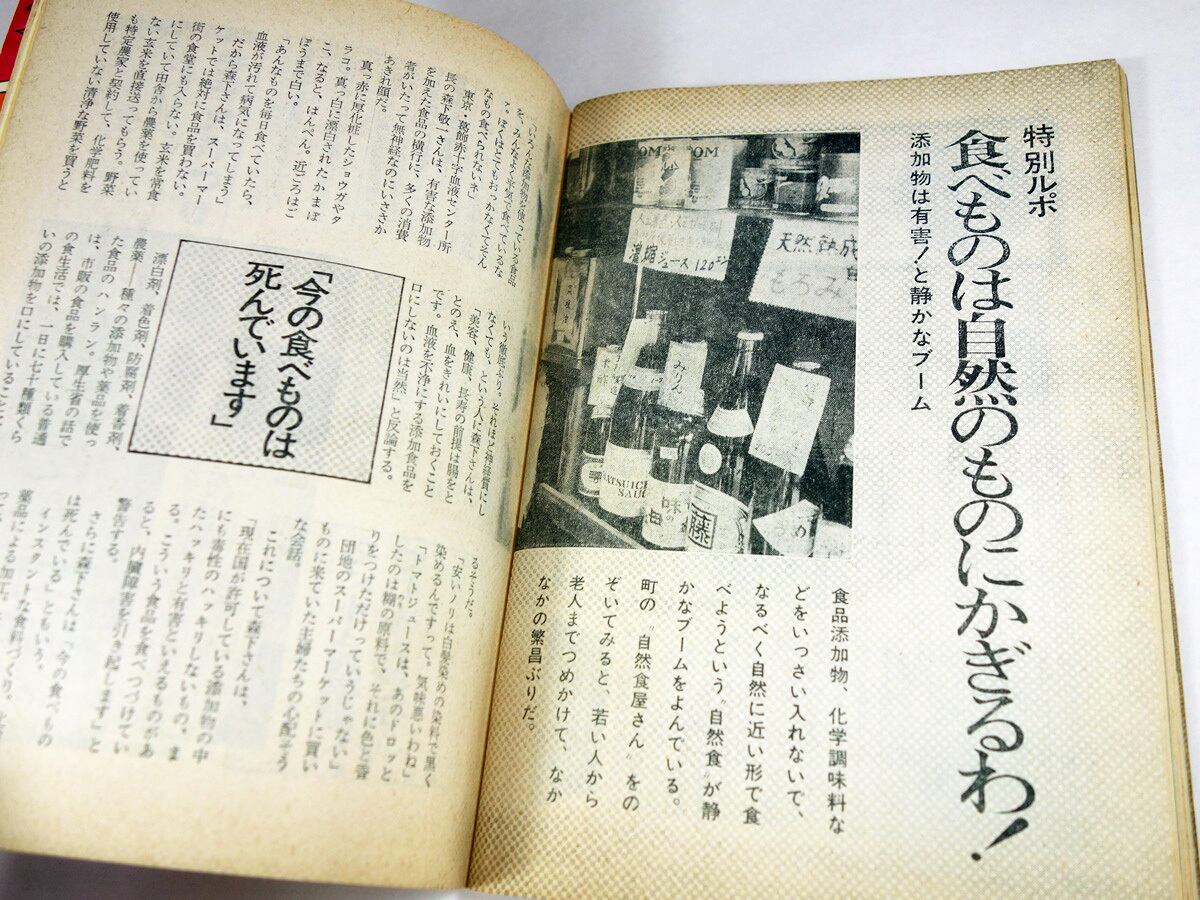 特別ルポ
食べものは自然のものにかぎるわ！
添加物は有害！と静かなブーム
天然熟成
もろみ
濃縮ジュース 120
みりん
味の
藤
食品添加物、化学調味料な
どをいっさい入れないで、
なるべく自然に近い形で食
べようという〝自然食〟が静
かなブームをよんでいる。
町の〝自然食屋さん〟をの
ぞいてみると、若い人から
老人までつめかけて、なか
なかの繁昌ぶりだ。
を、みんなよく平気で食べているな
ァ。ぼくはとてもおっかなくてそん
なもの食べられないネ」
東京・葛飾赤十字血液センター所
長の森下敬一さんは、有害な添加物
を加えた食品の横行に、多くの消費
者がいたって無神経なのにいささか
あきれ顔だ。
真っ赤に厚化粧したショウガやタ
ラコ。真っ白に漂白されたかまぼ
こ、なると、はんぺん。近ごろはご
ぼうまで白い。
「あんなものを毎日食べていたら、
血液が汚れて病気になってしまう」
だから森下さんは、スーパーマー
ケットでは絶対に食品を買わない。
街の食堂にも入らない。玄米を常食
にしていて田舎から農薬を使ってい
ない玄米を直接送ってもらう。野菜
も特定農家と契約して、化学肥料を
使用していない清浄な野菜を買うと
いう徹底ぶり。それほど神経質にし
なくても、という人に森下さんは、
「美容、健康、長寿の前提は腸をと
とのえ、血をきれいにしておくこと
です。血液を不浄にする添加食品を
口にしないのは当然」と反論する。
「今の食べものは
死んでいます」
漂白剤、着色剤、防腐剤、着香剤、
農薬――種々の添加物や薬品を使っ
た食品のハンラン。厚生省の話で
は、市販の食品を購入している普通
の食生活では、一日に七十種類ぐら
いの添加物を口にしていること
るそうだ。
「安いノリは白髪染めの染料で黒く
染めるんですって。気味悪いわね」
「トマトジュースは、あのドロッと
したのは糊の原料で、それに色と香
りをつけただけっていうじゃない」
団地のスーパーマーケットに買い
ものに来ていた主婦たちの心配そう
な会話。
これについて森下さんは、
「現在国が許可している添加物の中
にも毒性のハッキリしないもの、ま
たハッキリと有害といえるものがあ
る。こういう食品を食べつづけてい
ると、内臓障害を引き起します」と
警告する。
さらに森下さんは「今の食べもの
は死んでいる」ともいう。
インスタントな食料づくり、
薬品による加工。